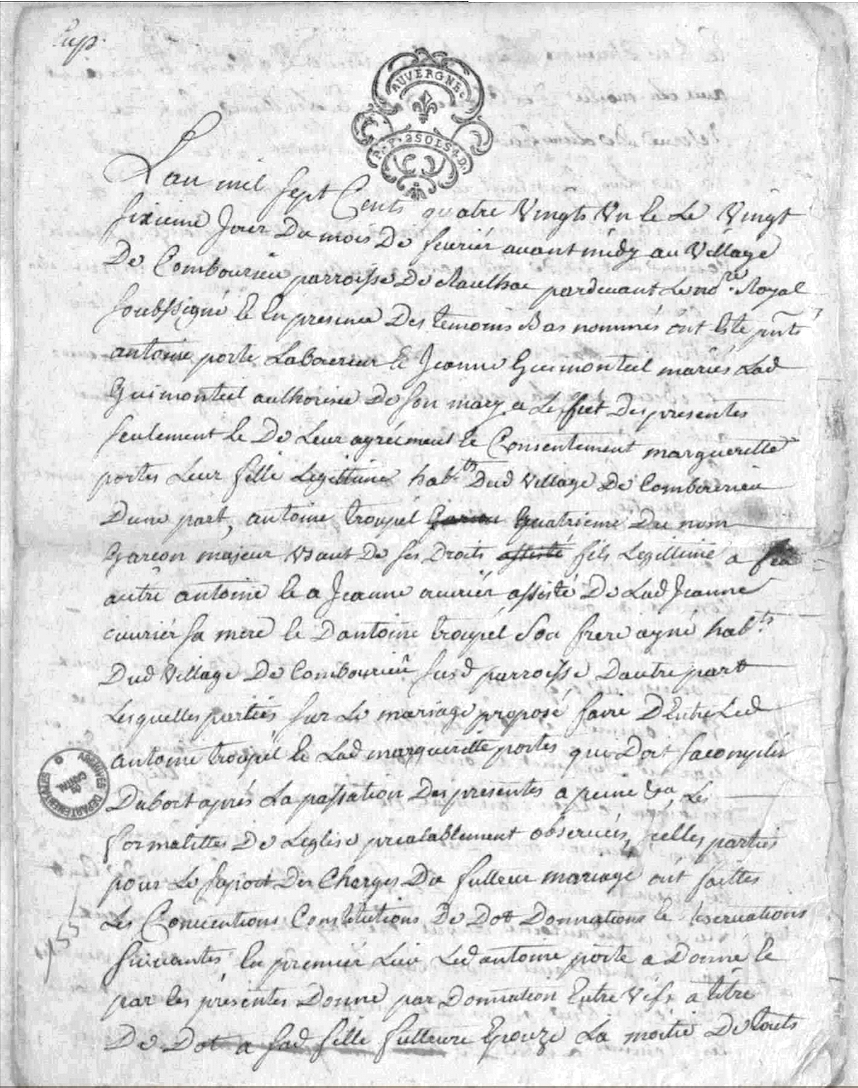 Exp.
AUVERGNE.
2 SOLS 4 D.
L'an mil sept Cents quatre Vingts Un et Le Vingt
sixieme Jour Du mois De fevrier avant midy au Village
De Combourieu parroisse De Raulhac pardevant Le no.re Royal
soussigné et En presence Des temoins Bas nommés ont Eté pnts
antoine porte Laboureur et Jeanne Guimonteil mariés Lad
Guimonteil authorisée De son mary a Leffet Des presentes
seulement et De Leur agréement et Consentement marguerette
portes Leur fille Legittime hab.ts Dud Village De Combourieu
Dune part, antoine troupel quatrieme Du nom
Garçon majeur Usant De ses Droits assisté fils Legittime a feu
autre antoine et a Jeanne cuurier assisté De Lad Jeanne
cuurier sa mere et Dantoine troupel Son frere ayné hab.ts
Dud Village De Combourieu susd parroisse Dautre part
Lesquelles parties sur Le mariage proposé faire DEntre Led
antoine troupel et Lad margueritte portes qui Doit sacomplir
Dabort aprés La passation Des presentes a peine &a, Les
formalittes De Leglise préalablement observées, jcelles parties
pour Le suport Des Charges Du futteur mariage ont faittes
Les Conventions Constitutions De Dot Donnations et reservations
suivantes En premier Lieu Led antoine porte a Donné et
par les présentes Donne par Donnation Entre Vifs a titre
De Dot a sad fille futteure Epouze La moitié De touts
ARCHIVES DEPARTEMENTALES
DU CANTAL
155